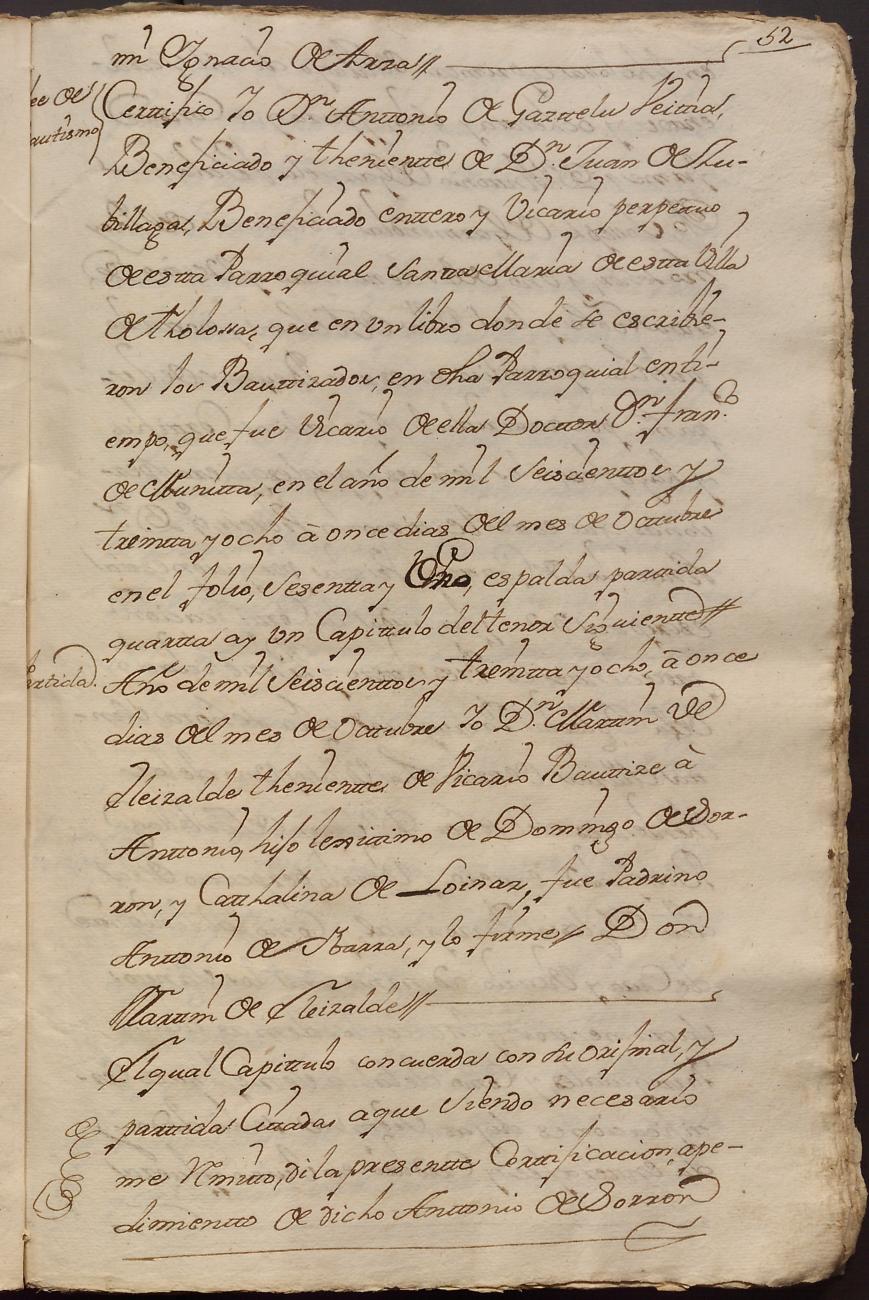 52
mi Ygnacio de Arza//
fee de
Bautismo
Certtifico Yo Dn. Anttonio de Garttelu Veittia,
Beneficiado y thenientte de Dn. Juan de Zu-
billaga, Beneficiado enttero y Vicario perpetuo
de estta Parroquial Santta Maria de estta Villa
de tholossa, que en vn libro donde se escribie-
ron los Bauttizados, en dha Parroquial en ti-
empo, que fue Vicario de ella Docttor Dn. Fran.co
de Munitta, en el año de mil Seiscienttos y
treintta y ocho à once dias del mes de Octtubre
en el folio, Sesentta y Ocho, espalda parttida
quartta ay vn Capittulo del tenor Siguientte//
Parttida.
Año de mil Seiscienttos y treintta y ocho, à once
dias del mes de Octtubre Yo Dn. Marttin de
Eleizalde thenientte de Vicario Bauttize à
Anttonio, hijo lexittimo de Domingo de Sor-
ron, y Catthalina de Loinaz, fue Padrino
Anttonio de Ybarra, y lo firme// Don
Marttin de Eleizalde//
El qual Capittulo concuerda con su orijinal, y
parttida Cittada, a que Siendo necesario
me Remitto, di la presentte Certtificacion, ape-
dimientto de dicho Anttonio de Sorron